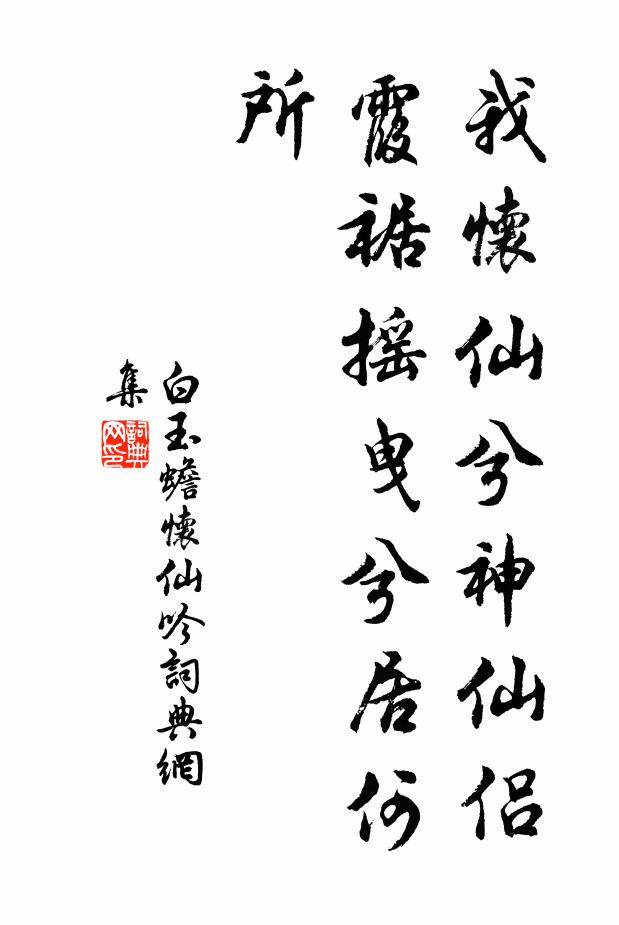 我懷仙兮神仙侣
霞裾摇曳兮居何
所
白玉蟾懷仙吟詞典網
集
詞典
网印